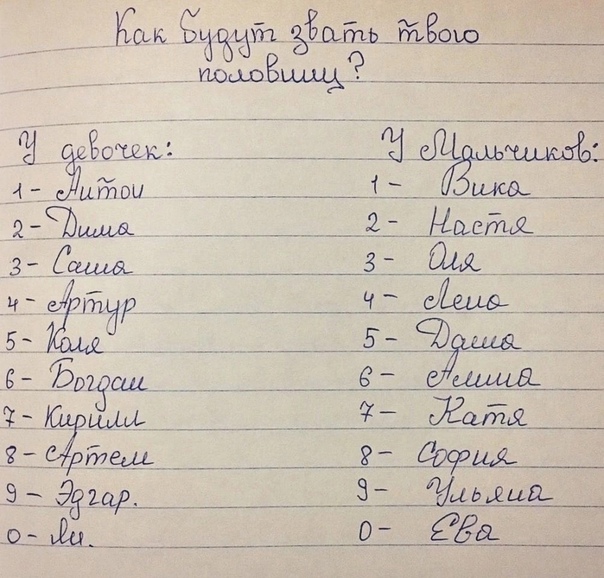 Как будут звать твого
половинц?
У девочек: У Мальчиков:
1 - Антон 1 - Вика
2 - Дима 2 - Настя
3 - Саша 3 - Оля
4 - Артур 4 - Лена
5 - Коля 5 - Даша
6 - Богдан 6 - Алина
7 - Кирилл 7 - Катя
8 - Артем 8 - София
9 - Эдгар. 9 - Ульяна
0 - Ли. 0 - Ева